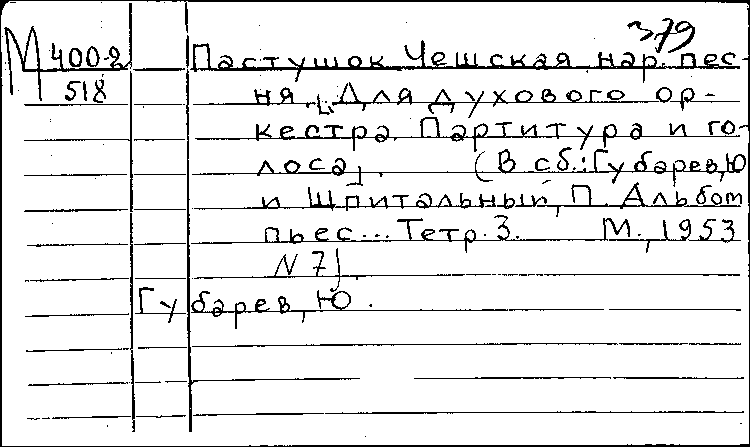 379
М 400-2 Пастушок. Чешская нар. пес-
518 ня. [Для духового ор-
кестра. Партитура и го-
лоса]. (В сб.: Губарев, Ю
и Шпитальный, П. Альбом
пьес... Тетр. 3. М., 1953
N 7)
Губарев, Ю.